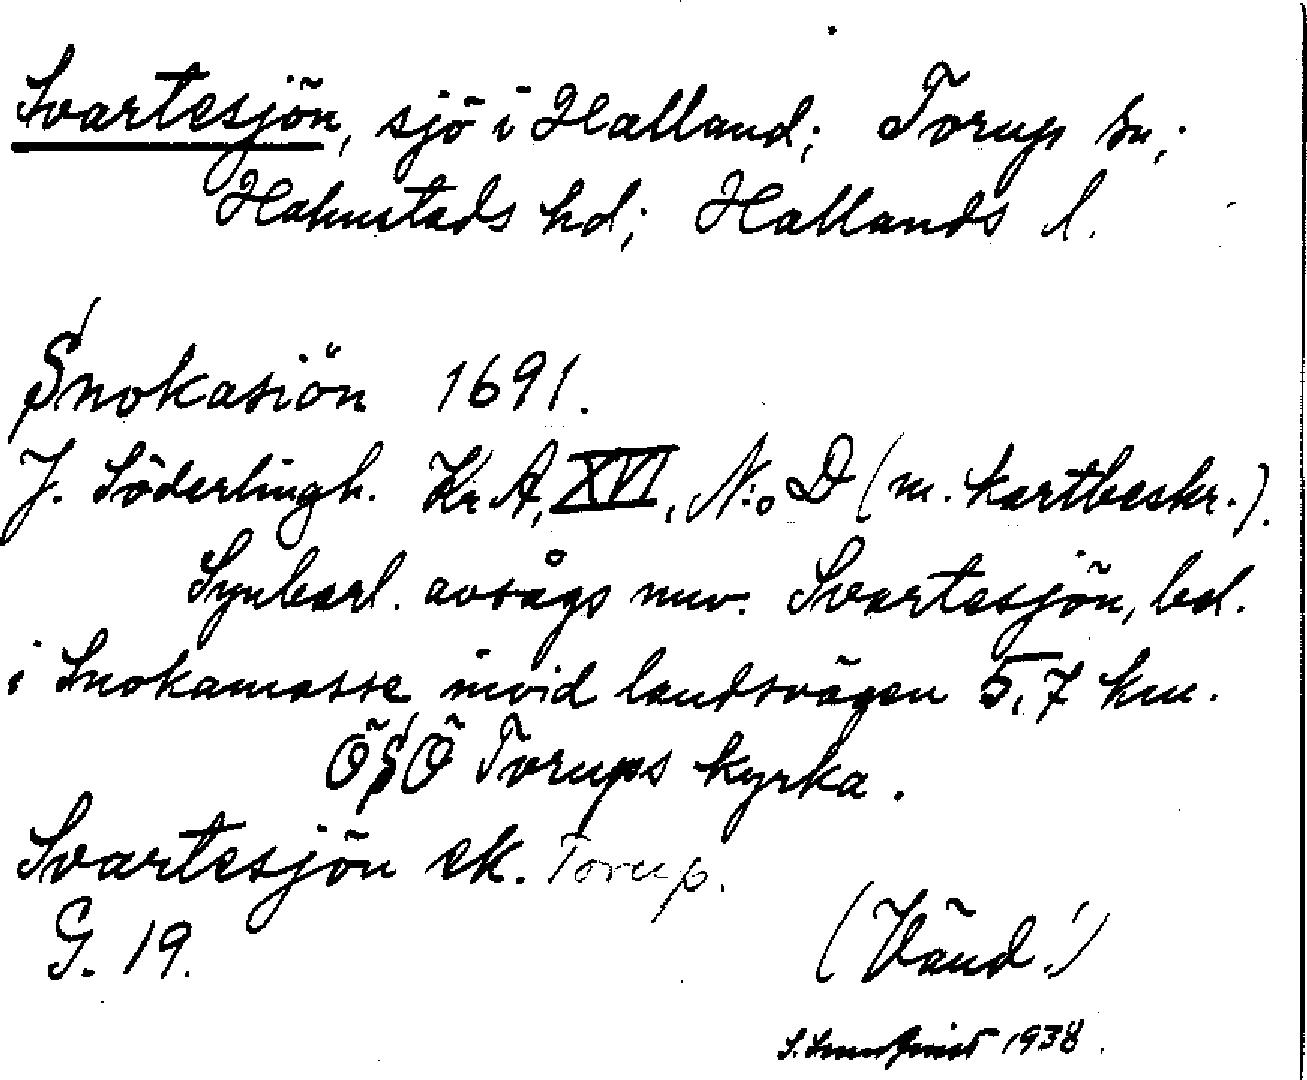 Svartesjön, sjö i Halland; Torup sn;
Halmstads hd; Hallands l.
Snokasiön 1691.
J. Söderlingh. Kr. A, XVI, N:o D (m. kartbeskr.).
Synbarl. avsågs nuv. Svartesjön, bel.
i Snokamosse invid landsvägen 5,7 km.
ÖSÖ Torups kyrka.
Svartesjön ek. Torup.
G. 19.
(Vänd!)
1938.